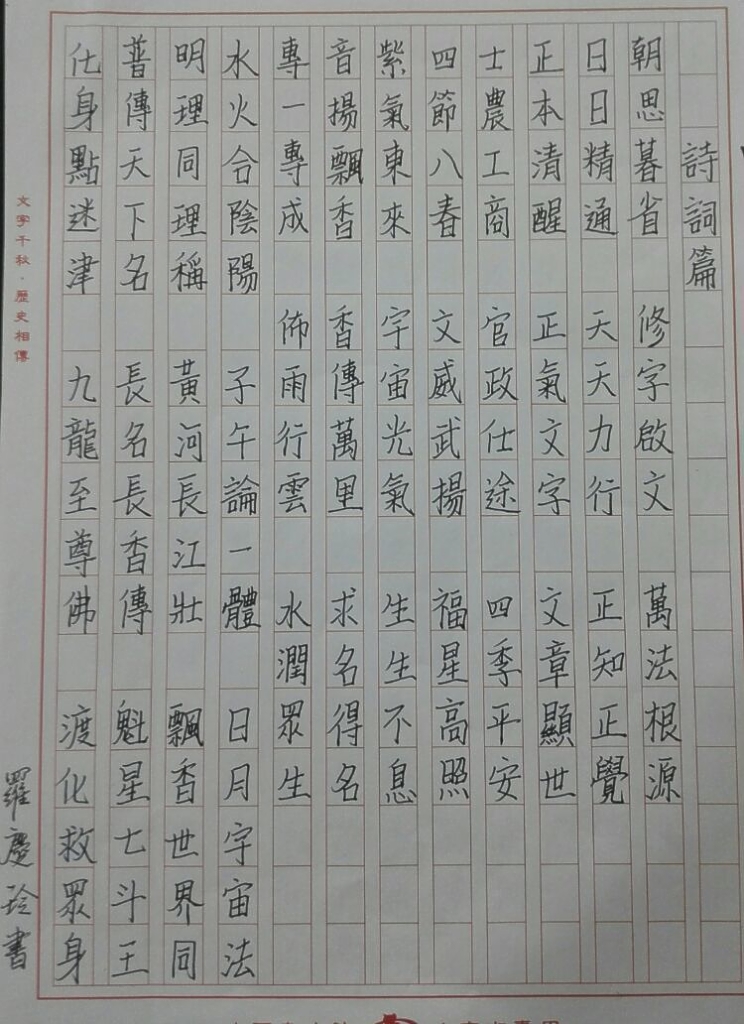 詩詞篇
朝思暮省　修字啟文　萬法根源
日日精通　天天力行　正知正覺
正本清醒　正氣文字　文章顯世
士農工商　官政仕途　四季平安
四節八春　文威武揚　福星高照
紫氣東來　宇宙光氣　生生不息
音揚飄香　香傳萬里　求名得名
專一專成　佈雨行雲　水潤眾生
水火合陰陽　子午論一體　日月宇宙法
明理同理稱　黃河長江壯　飄香世界同
普傳天下名　長名長香傳　魁星七斗王
化身點迷津　九龍至尊佛　渡化救眾身
羅慶玲書
文字千秋·歷史相傳